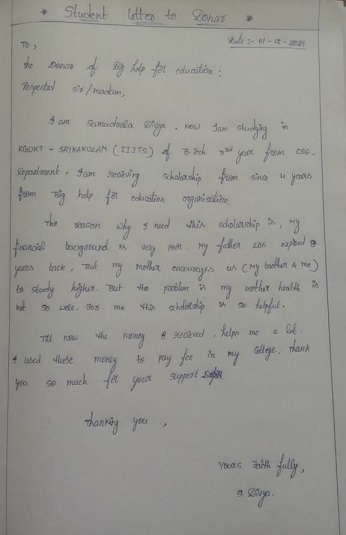 * Student Letter to Donar *
Date :- 01-12-2021
TO,
the Donar of Big help for education:
Respected sir/madam,
I am Samudrala Divya. Now I am studying in
RGUKT - SRIKAKULAM (IIITS) of B.Tech 3rd year from CSE
Department. I am recieving scholarship from since 4 years
from Big help for education organisation.
The reason why I need this scholarship is, my
financial background is very poor. My father was expired 7
years back, But my mother encourages us (my brother & me)
to study higher. But the problem is my mother health is
not so well. For me this scholarship is so helpful.
Till now the money I recieved, helps me a lot.
I used these money to pay fee in my College. Thank
you so much for your support
Thanking you,
yours faith fully,
S Divya.